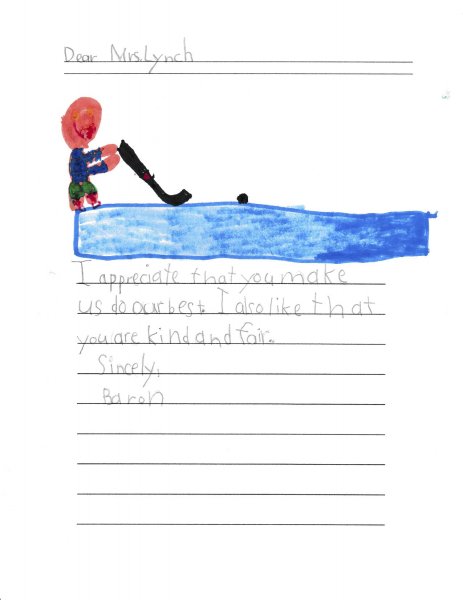 Dear Mrs. Lynch
I appreciate that you make
us do our best. I also like that
you are kind and fair.
Sincely,
Baron